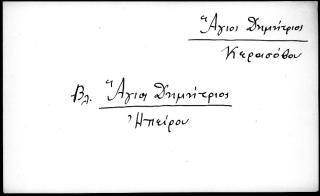 Ἅγιος Δημήτριος
Κερασόβου
Βλ. Ἅγιος Δημήτριος
Ἠπείρου